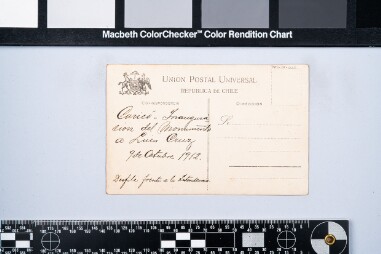 Macbeth ColorChecker™ Color Rendition Chart
UNION POSTAL UNIVERSAL
REPUBLICA DE CHILE
CORRESPONDENCIA
DIRECCION
S.
Curicó - Inaugura
cion del Monumento
a Luis Cruz
9 de Octubre 1912.
Desfile frente a la Intendencia